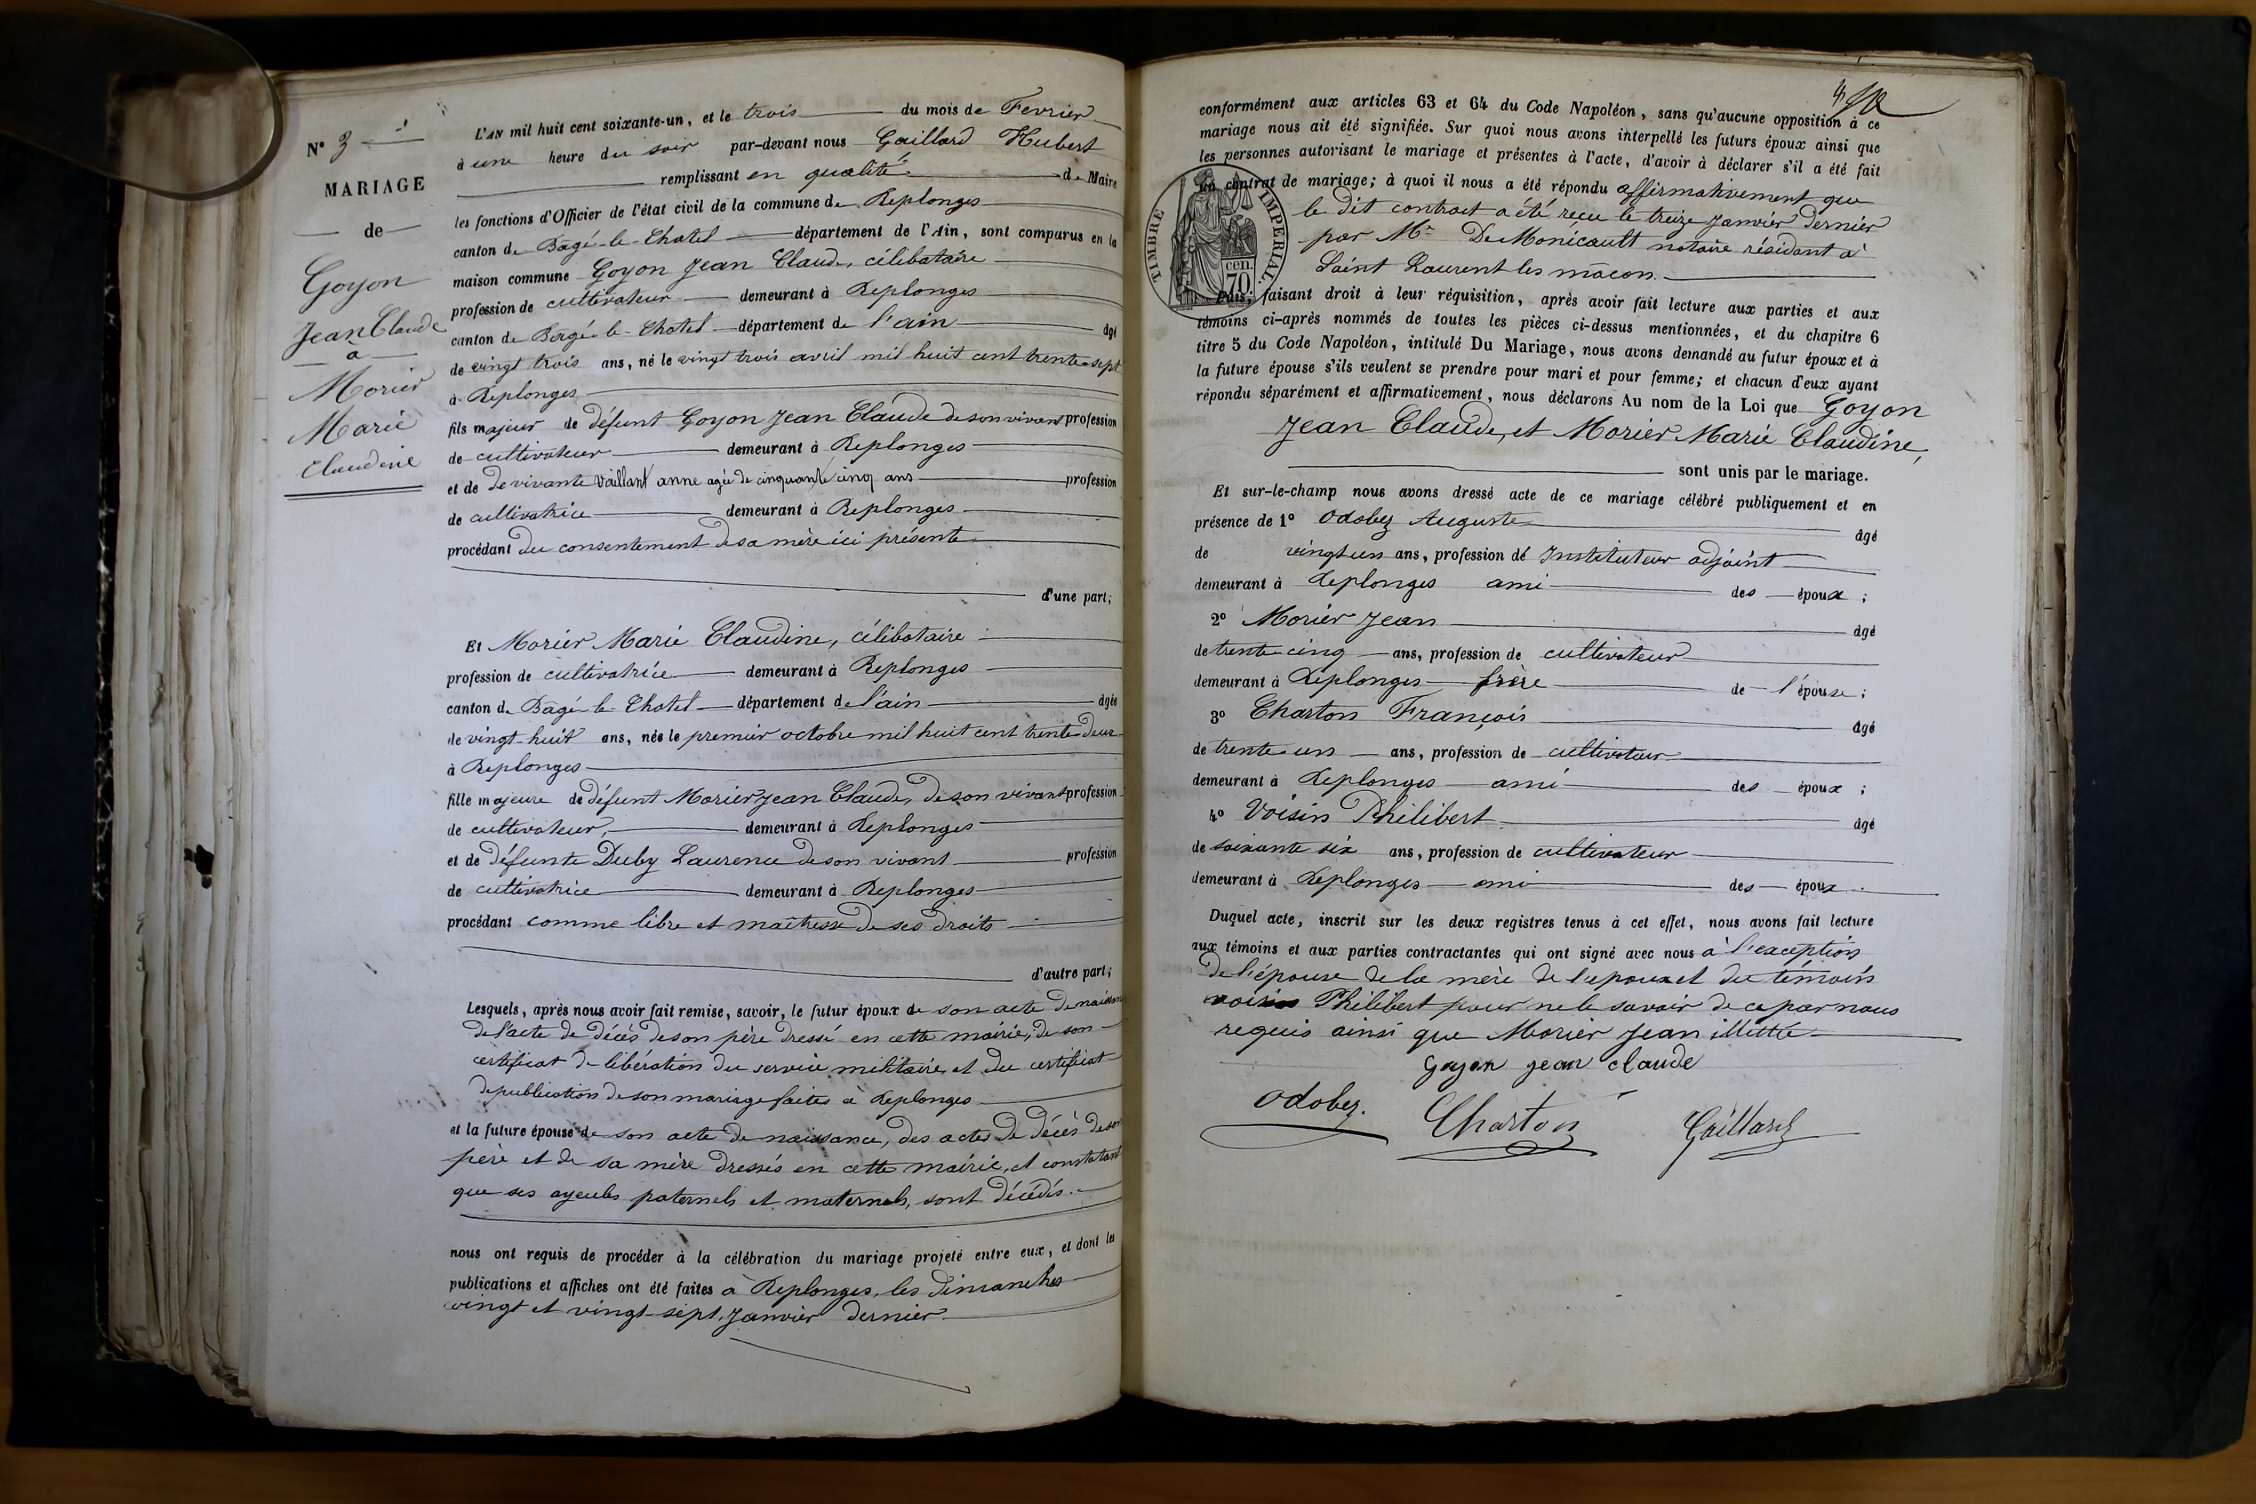 N° 3
MARIAGE
de
Goyon
Jean Claude
à
Morier
Marie
Claudine
L'AN mil huit cent soixante-un, et le trois du mois de Fevrier
à une heure du soir par-devant nous Gaillard Hubert
remplissant en qualité de Maire
les fonctions d'Officier de l'état civil de la commune de Replonges
canton de Bagé-le-Chatel département de l'Ain, sont comparus en la
maison commune Goyon Jean Claude, célibataire
profession de cultivateur demeurant à Replonges
canton de Bagé-le-Chatel département de l'ain âgé
de vingt trois ans, né le vingt trois avril mil huit cent trente sept
à Replonges
fils majeur de défunt Goyon Jean Claude de son vivant profession
de cultivateur demeurant à Replonges
et de de vivante Vaillant anne agée de cinquante cinq ans profession
de cultivatrice demeurant à Replonges
procédant du consentement de sa mère ici présente
d'une part;
Et Morier Marie Claudine, célibataire
profession de cultivatrice demeurant à Replonges
canton de Bagé-le-Chatel département de l'ain âgée
de vingt-huit ans, née le premier octobre mil huit cent trente deux
à Replonges
fille majeure de défunt Morier Jean Claude, de son vivant profession
de cultivateur, demeurant à Replonges
et de défunte Duby Laurence de son vivant profession
de cultivatrice demeurant à Replonges
procédant comme libre et maîtresse de ses droits
d'autre part;
Lesquels, après nous avoir fait remise, savoir, le futur époux de son acte de naissance
de l'acte de décès de son père dressé en cette mairie, de son
certificat de libération du service militaire et du certificat
de publication de son mariage faites à Replonges
et la future épouse de son acte de naissance, des actes de décès de son
père et de sa mère dressés en cette mairie, et constatant
que ses ayeuls paternels et maternels, sont décédés.
nous ont requis de procéder à la célébration du mariage projeté entre eux, et dont les
publications et affiches ont été faites à Replonges, les dimanches
vingt et vingt-sept Janvier dernier
conformément aux articles 63 et 64 du Code Napoléon, sans qu'aucune opposition à ce
mariage nous ait été signifiée. Sur quoi nous avons interpellé les futurs époux ainsi que
les personnes autorisant le mariage et présentes à l'acte, d'avoir à déclarer s'il a été fait
un contrat de mariage; à quoi il nous a été répondu affirmativement que
le dit contract a été recu le treize Janvier dernier
par Mr De Monicault notaire résidant à
Saint Laurent les macon
TIMBRE IMPERIAL
70 cen.
Puis, faisant droit à leur réquisition, après avoir fait lecture aux parties et aux
témoins ci-après nommés de toutes les pièces ci-dessus mentionnées, et du chapitre 6
titre 5 du Code Napoléon, intitulé Du Mariage, nous avons demandé au futur époux et à
la future épouse s'ils veulent se prendre pour mari et pour femme; et chacun d'eux ayant
répondu séparément et affirmativement, nous déclarons Au nom de la Loi que Goyon
Jean Claude, et Morier Marie Claudine,
sont unis par le mariage.
Et sur-le-champ nous avons dressé acte de ce mariage célébré publiquement et en
présence de 1° Odobez Auguste âgé
de vingt un ans, profession de Instituteur adjoint
demeurant à Replonges ami des époux;
2° Morier Jean âgé
de trente cinq ans, profession de cultivateur
demeurant à Replonges frère de l'épouse;
3° Charton François âgé
de trente un ans, profession de cultivateur
demeurant à Replonges ami des époux;
4° Voisin Philibert âgé
de soixante six ans, profession de cultivateur
demeurant à Replonges ami des époux.
Duquel acte, inscrit sur les deux registres tenus à cet effet, nous avons fait lecture
aux témoins et aux parties contractantes qui ont signé avec nous à l'exception
de l'épouse de la mère de l'epoux et du témoin
voisin Philibert pour ne le savoir de ce par nous
requis ainsi que Morier Jean illittré
Goyon jean claude
Odobez. Charton Gaillard